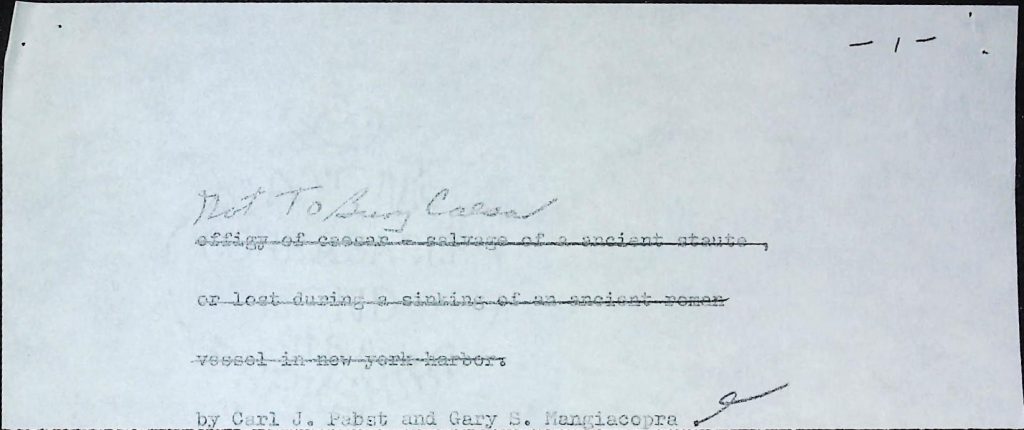 - 1 -
Not To Bury Caesar
effigy of caesar - salvage of a ancient staute,
or lost during a sinking of an ancient roman
vessel in new york harbor.
by Carl J. Pabst and Gary S. Mangiacopra.